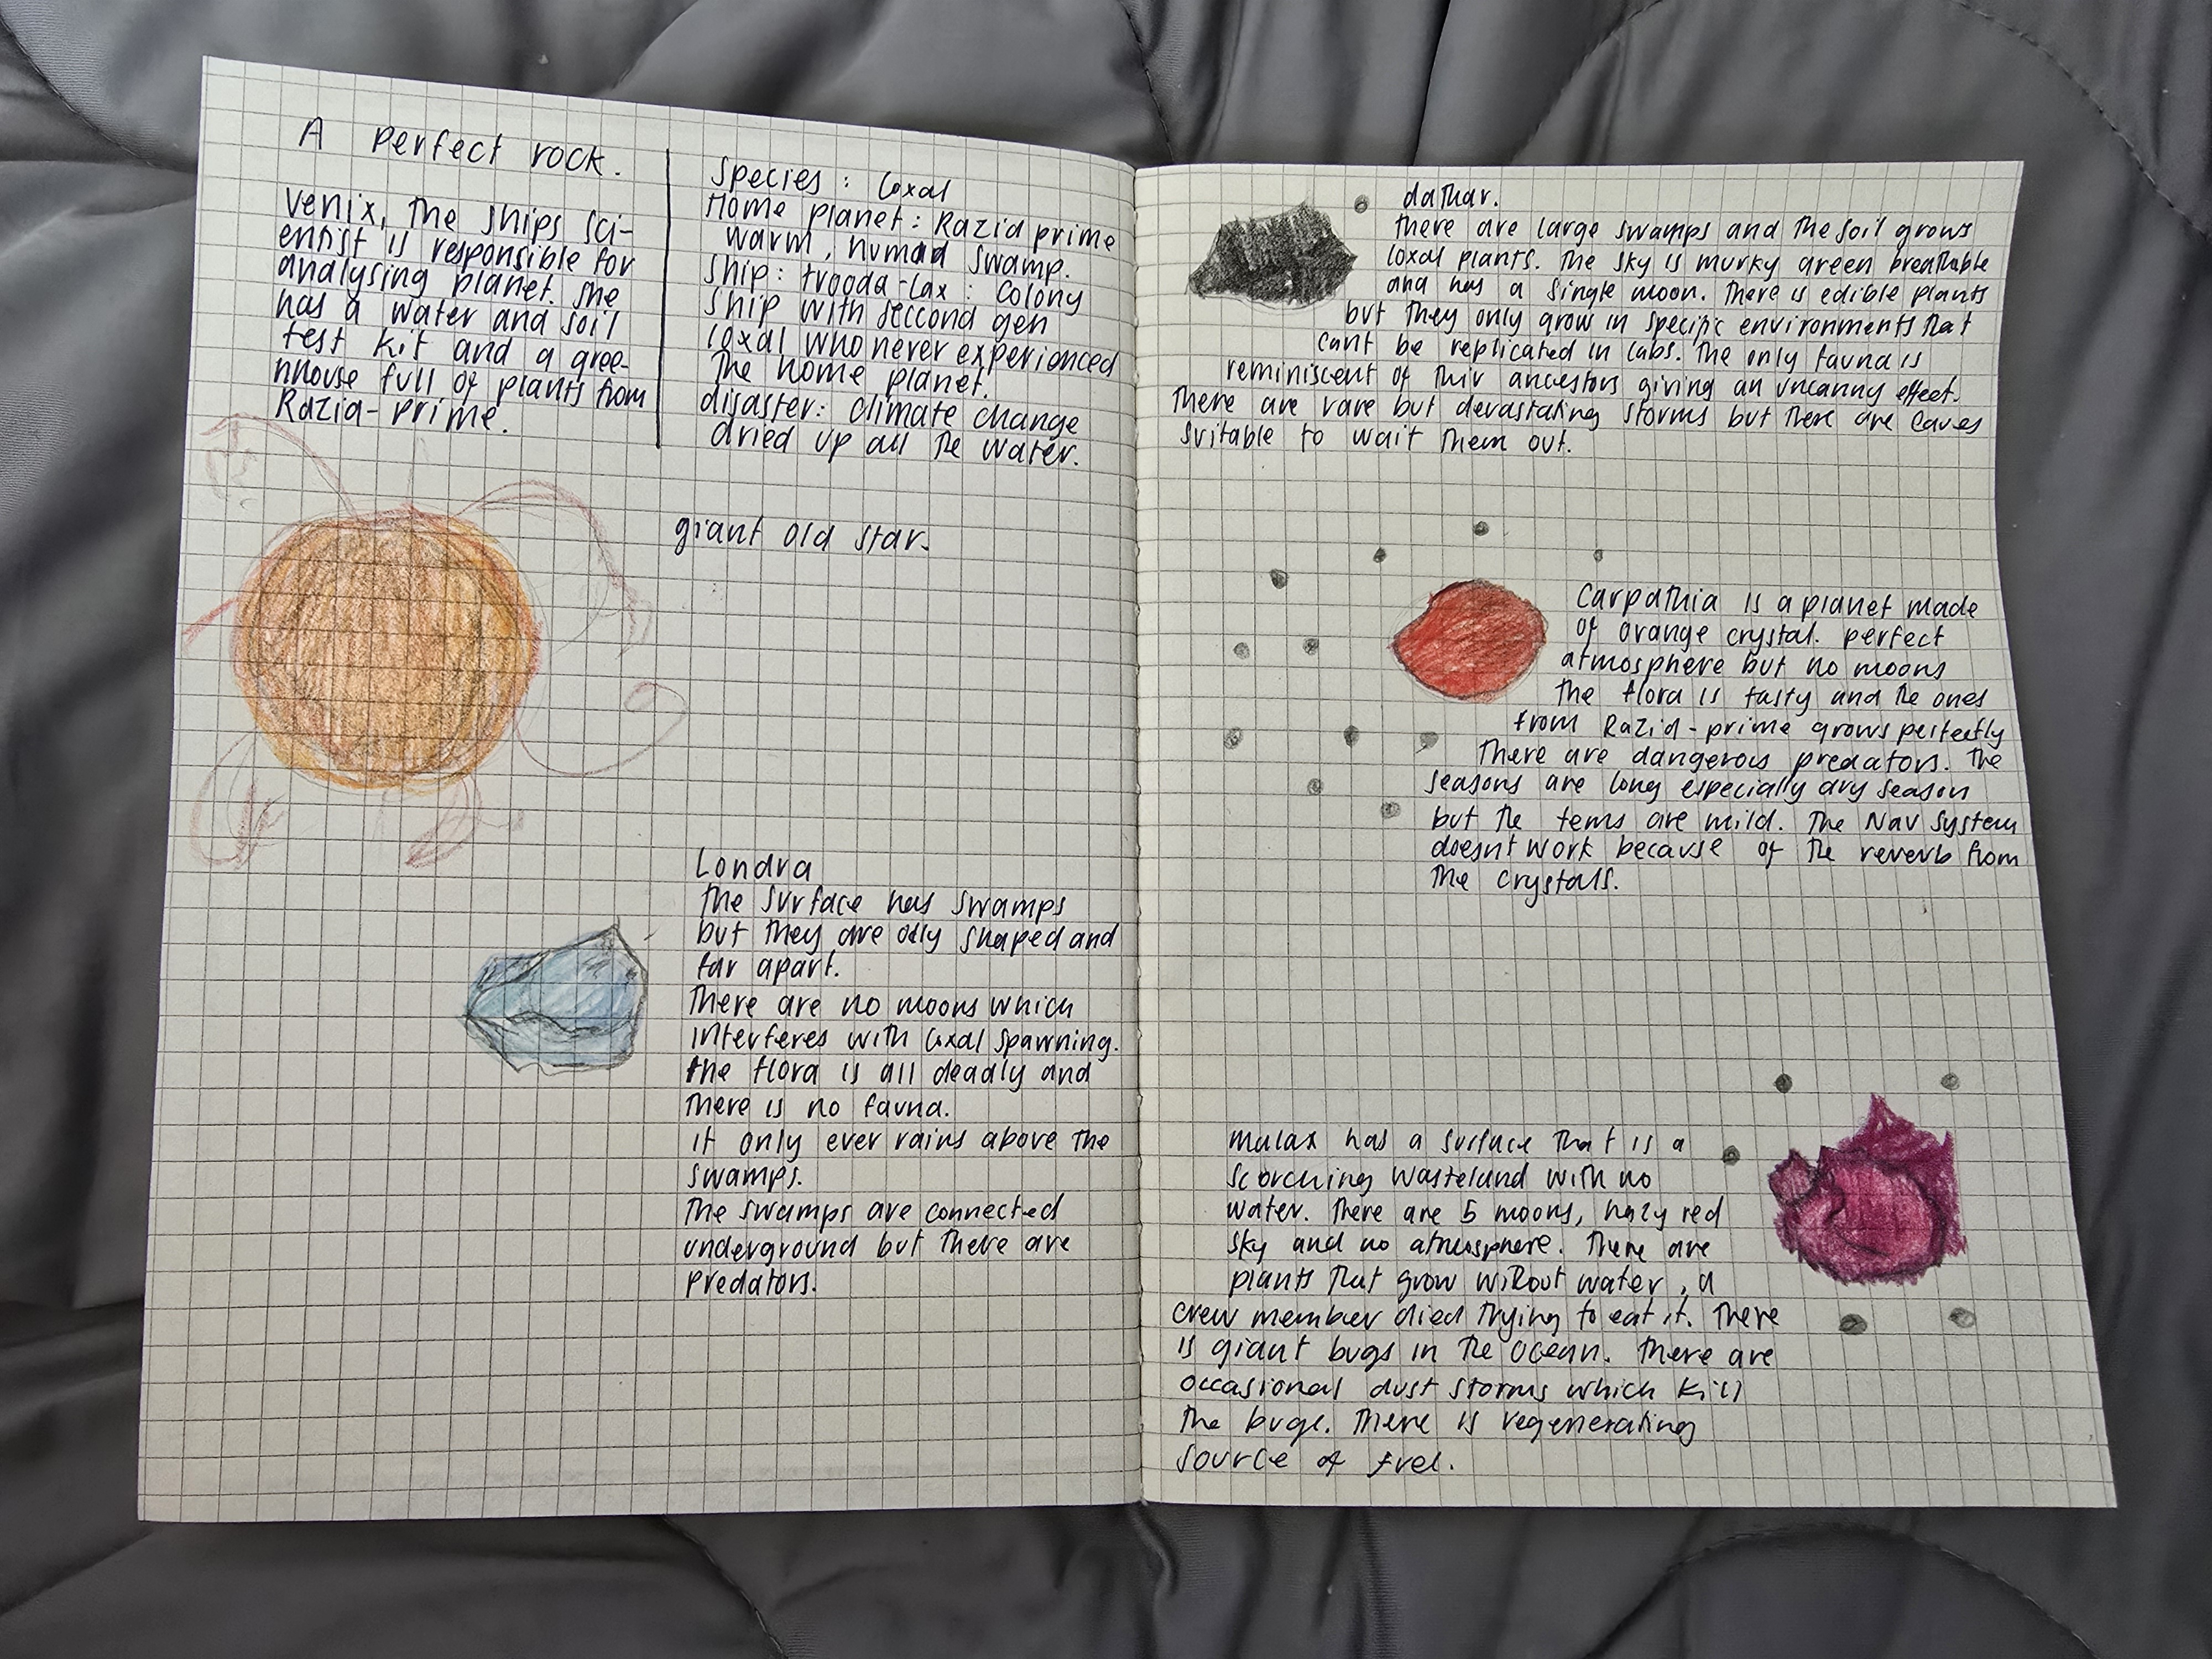 A perfect rock.
Venix, the ships sci-
entist is responsible for
analysing planet. she
has a water and soil
test kit and a gree-
nhouse full of plants from
Razia-prime.
Species: Loxal
Home planet: Razid prime
warm, humad swamp.
Ship: trooda-Lax: Colony
ship with seccond gen
loxal who never experienced
the home planet.
disaster: climate change
dried up all the water.
giant old star.
Londra
the surface has swamps
but they are odly shaped and
far apart.
There are no moons which
interferes with loxal spawning.
the flora is all deadly and
there is no fauna.
it only ever rains above the
swamps.
the swamps are connected
underground but there are
predators.
dathar.
there are large swamps and the soil grows
loxal plants. The sky is murky green breathable
and has a single moon. There is edible plants
but they only grow in specific environments that
cant be replicated in labs. The only fauna is
reminiscent of thiv ancestors giving an uncanny effect.
There are rare but devastating storms but there are caves
suitable to wait them out.
Carpathia is a planet made
of orange crystal. perfect
atmosphere but no moons
the flora is tasty and the ones
from Razid-prime grows perfectly
There are dangerous predators. The
seasons are long especially dry season
but the tems are mild. The Nav system
doesnt work because of the reverb from
the crystals.
mulax has a surface that is a
scorching wasteland with no
water. There are 5 moons, hazy red
sky and no atmosphere. There are
plants that grow without water, a
crew member died trying to eat it. There
is giant bugs in the ocean. There are
occasional dust storms which kill
the bugs. There is regenerating
source of fuel.